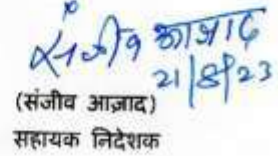 संजीव आज़ाद
21/8/23
(संजीव आज़ाद)
सहायक निदेशक